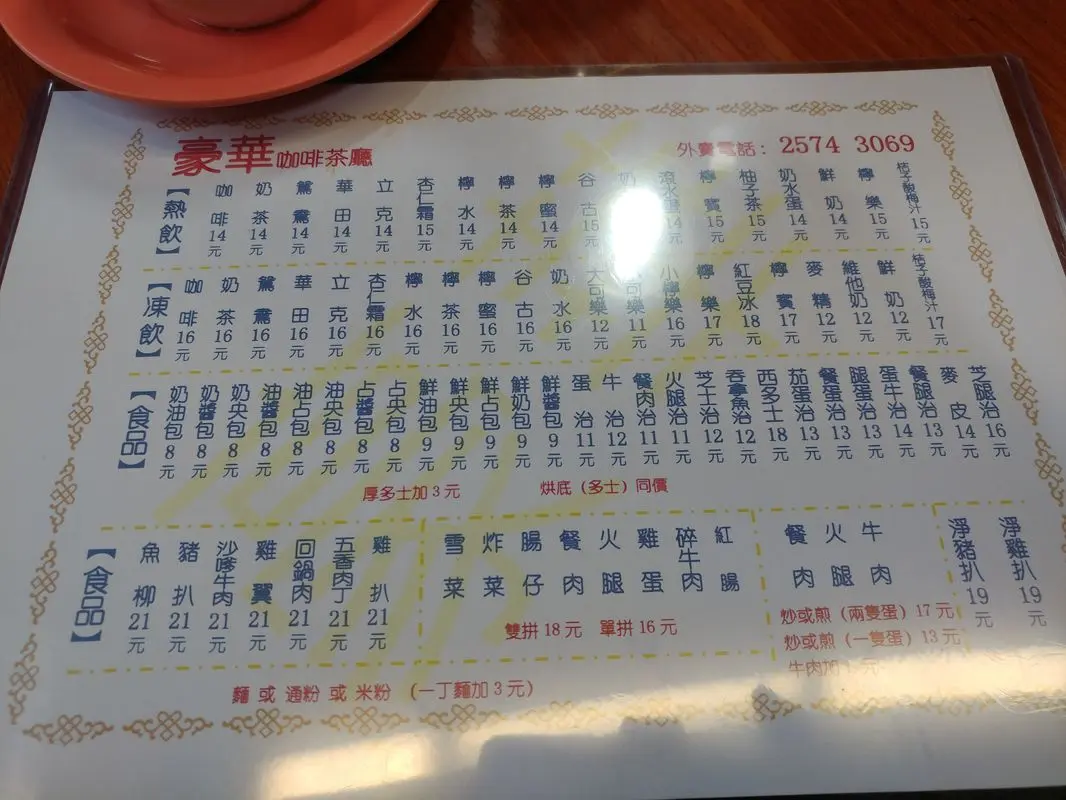 豪華咖啡茶廳
外賣電話：2574 3069
【熱飲】
咖啡14元
奶茶14元
鴛鴦14元
華田14元
立克14元
杏仁霜15元
檸水14元
檸茶14元
檸蜜14元
谷古15元
奶
滾水蛋14元
檸賓15元
柚子茶15元
奶水蛋14元
鮮奶14元
檸樂15元
桔子酸梅汁15元
【凍飲】
咖啡16元
奶茶16元
鴛鴦16元
華田16元
立克16元
杏仁霜16元
檸水16元
檸茶16元
檸蜜16元
谷古16元
奶水16元
大可樂12元
可樂11元
小檸樂16元
檸樂17元
紅豆冰18元
檸賓17元
麥精12元
維他奶12元
鮮奶12元
桔子酸梅汁17元
【食品】
奶油包8元
奶醬包8元
奶央包8元
油醬包8元
油占包8元
油央包8元
占醬包8元
占央包8元
鮮油包9元
鮮央包9元
鮮占包9元
鮮奶包9元
鮮醬包9元
蛋治11元
牛治12元
餐肉治11元
火腿治11元
芝士治12元
吞拿魚治12元
西多士18元
茄蛋治13元
餐蛋治13元
腿蛋治13元
蛋牛治14元
餐腿治13元
麥皮14元
芝腿治16元
厚多士加3元
烘底（多士）同價
【食品】
魚柳21元
豬扒21元
沙嗲牛肉21元
雞翼21元
回鍋肉21元
五香肉丁21元
雞扒21元
雪菜
炸菜
腸仔
餐肉
火腿
雞蛋
碎牛肉
紅腸
雙拼18元 單拼16元
餐肉
火腿
牛肉
炒或煎（兩隻蛋）17元
炒或煎（一隻蛋）13元
牛肉加 元
淨豬扒19元
淨雞扒19元
麵 或 通粉 或 米粉 （一丁麵加3元）